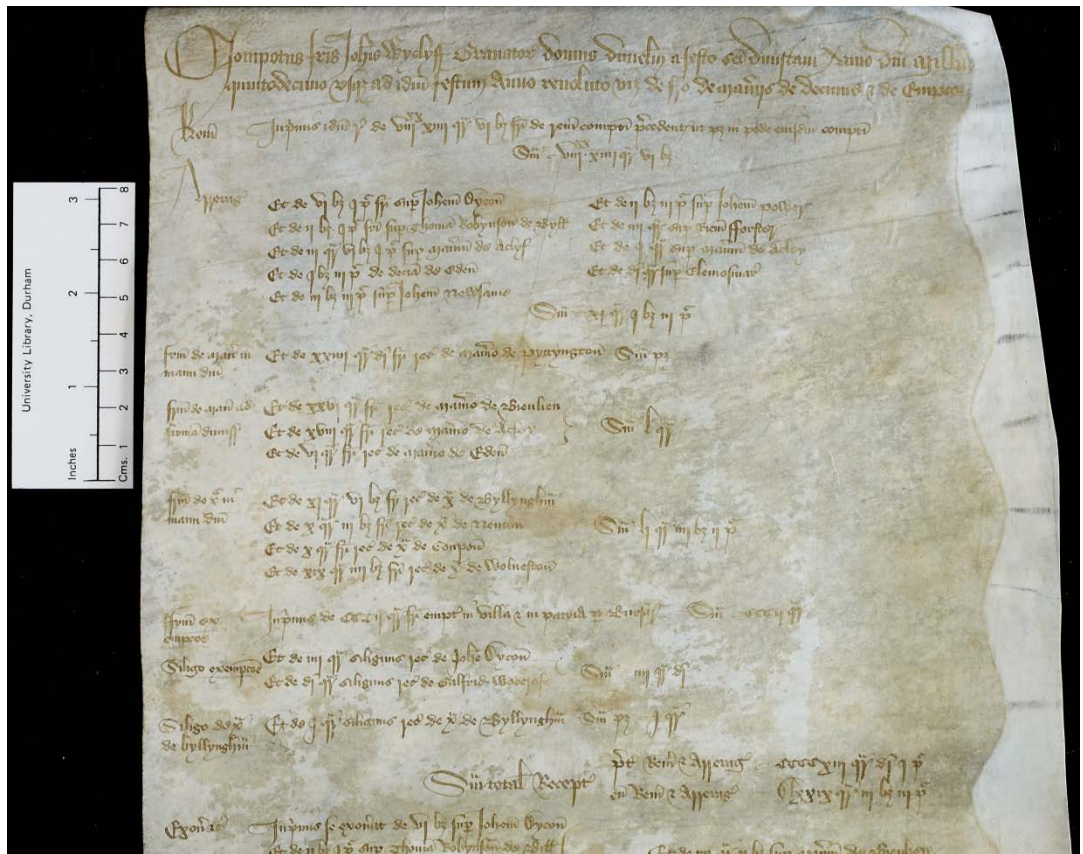 Compotus fris Johis Wyclyff Granator domus dunelm a festo sci Dunstani Anno dni Mill
quintodecimo usq ad idm festum Anno revoluto viz de fro de manijs de decimis & de Empcoe
Rem Inpimis idm de viij xiiij qr vi bz fri de rem compti pcedent in pz in pede eiusdm compti
Sm viij xiiij qr vi bz
Arrerag
Et de vi bz j p fri sup Johem Sycon
Et de ij bz j p fri sup Thoma Robynson de Byll
Et de iij qr vi bz j p sup manm de Aclyf
Et de j bz iij p de decia de Eden
Et de iij bz iij p sup Johem Newsame
Et de ij bz iij p sup Johem Power
Et de iij qr sup Ricm fforster
Et de j qr sup manm de Acley
Et de di qr sup Elemosinar
Sm xj qr j bz iij p
frm de man in mann dni
Et de xxiiij qr di fri rec de manio de Pyttyngton Sm pz
frm de man ad firma dimiss
Et de xxvj qr fri rec de manio de Bewlien
Et de xviij qr fri rec de manio de Acley
Et de vi qr fri rec de manio de Eden
Sm l qr
frm de x in mann dni
Et de xj qr vi bz fri rec de x de Byllynghm
Et de x qr iij bz fri rec de x de Newton
Et de x qr fri rec de x de Coupon
Et de xix qr iiij bz fri rec de x de Wolueston
Sm lj qr iiij bz ij p
ffrm ex empcoe
Inpimis de CCCij qr fri empt in villa & in patria p Bursar Sm cccij qr
Siligo ex empcoe
Et de iiij qr siliginis rec de Johe Sycon
Et de di qr siliginis rec de Galfrid
Sm iiij qr di
Siligo de x de byllynghm
Et de j qr siliginis rec de x de Byllynghm Sm pz j qr
Sm total Recept
pt Rem & Arrerag ccccxiij qr di j p
cu Rem & Arrerag
Exonat
Inpimis se exonat de vi bz sup Johem Sycon
Et de ij bz j p sup Thoma Robynson de Bill
University Library, Durham
Inches 1 2 3
Cms. 1 2 3 4 5 6 7 8